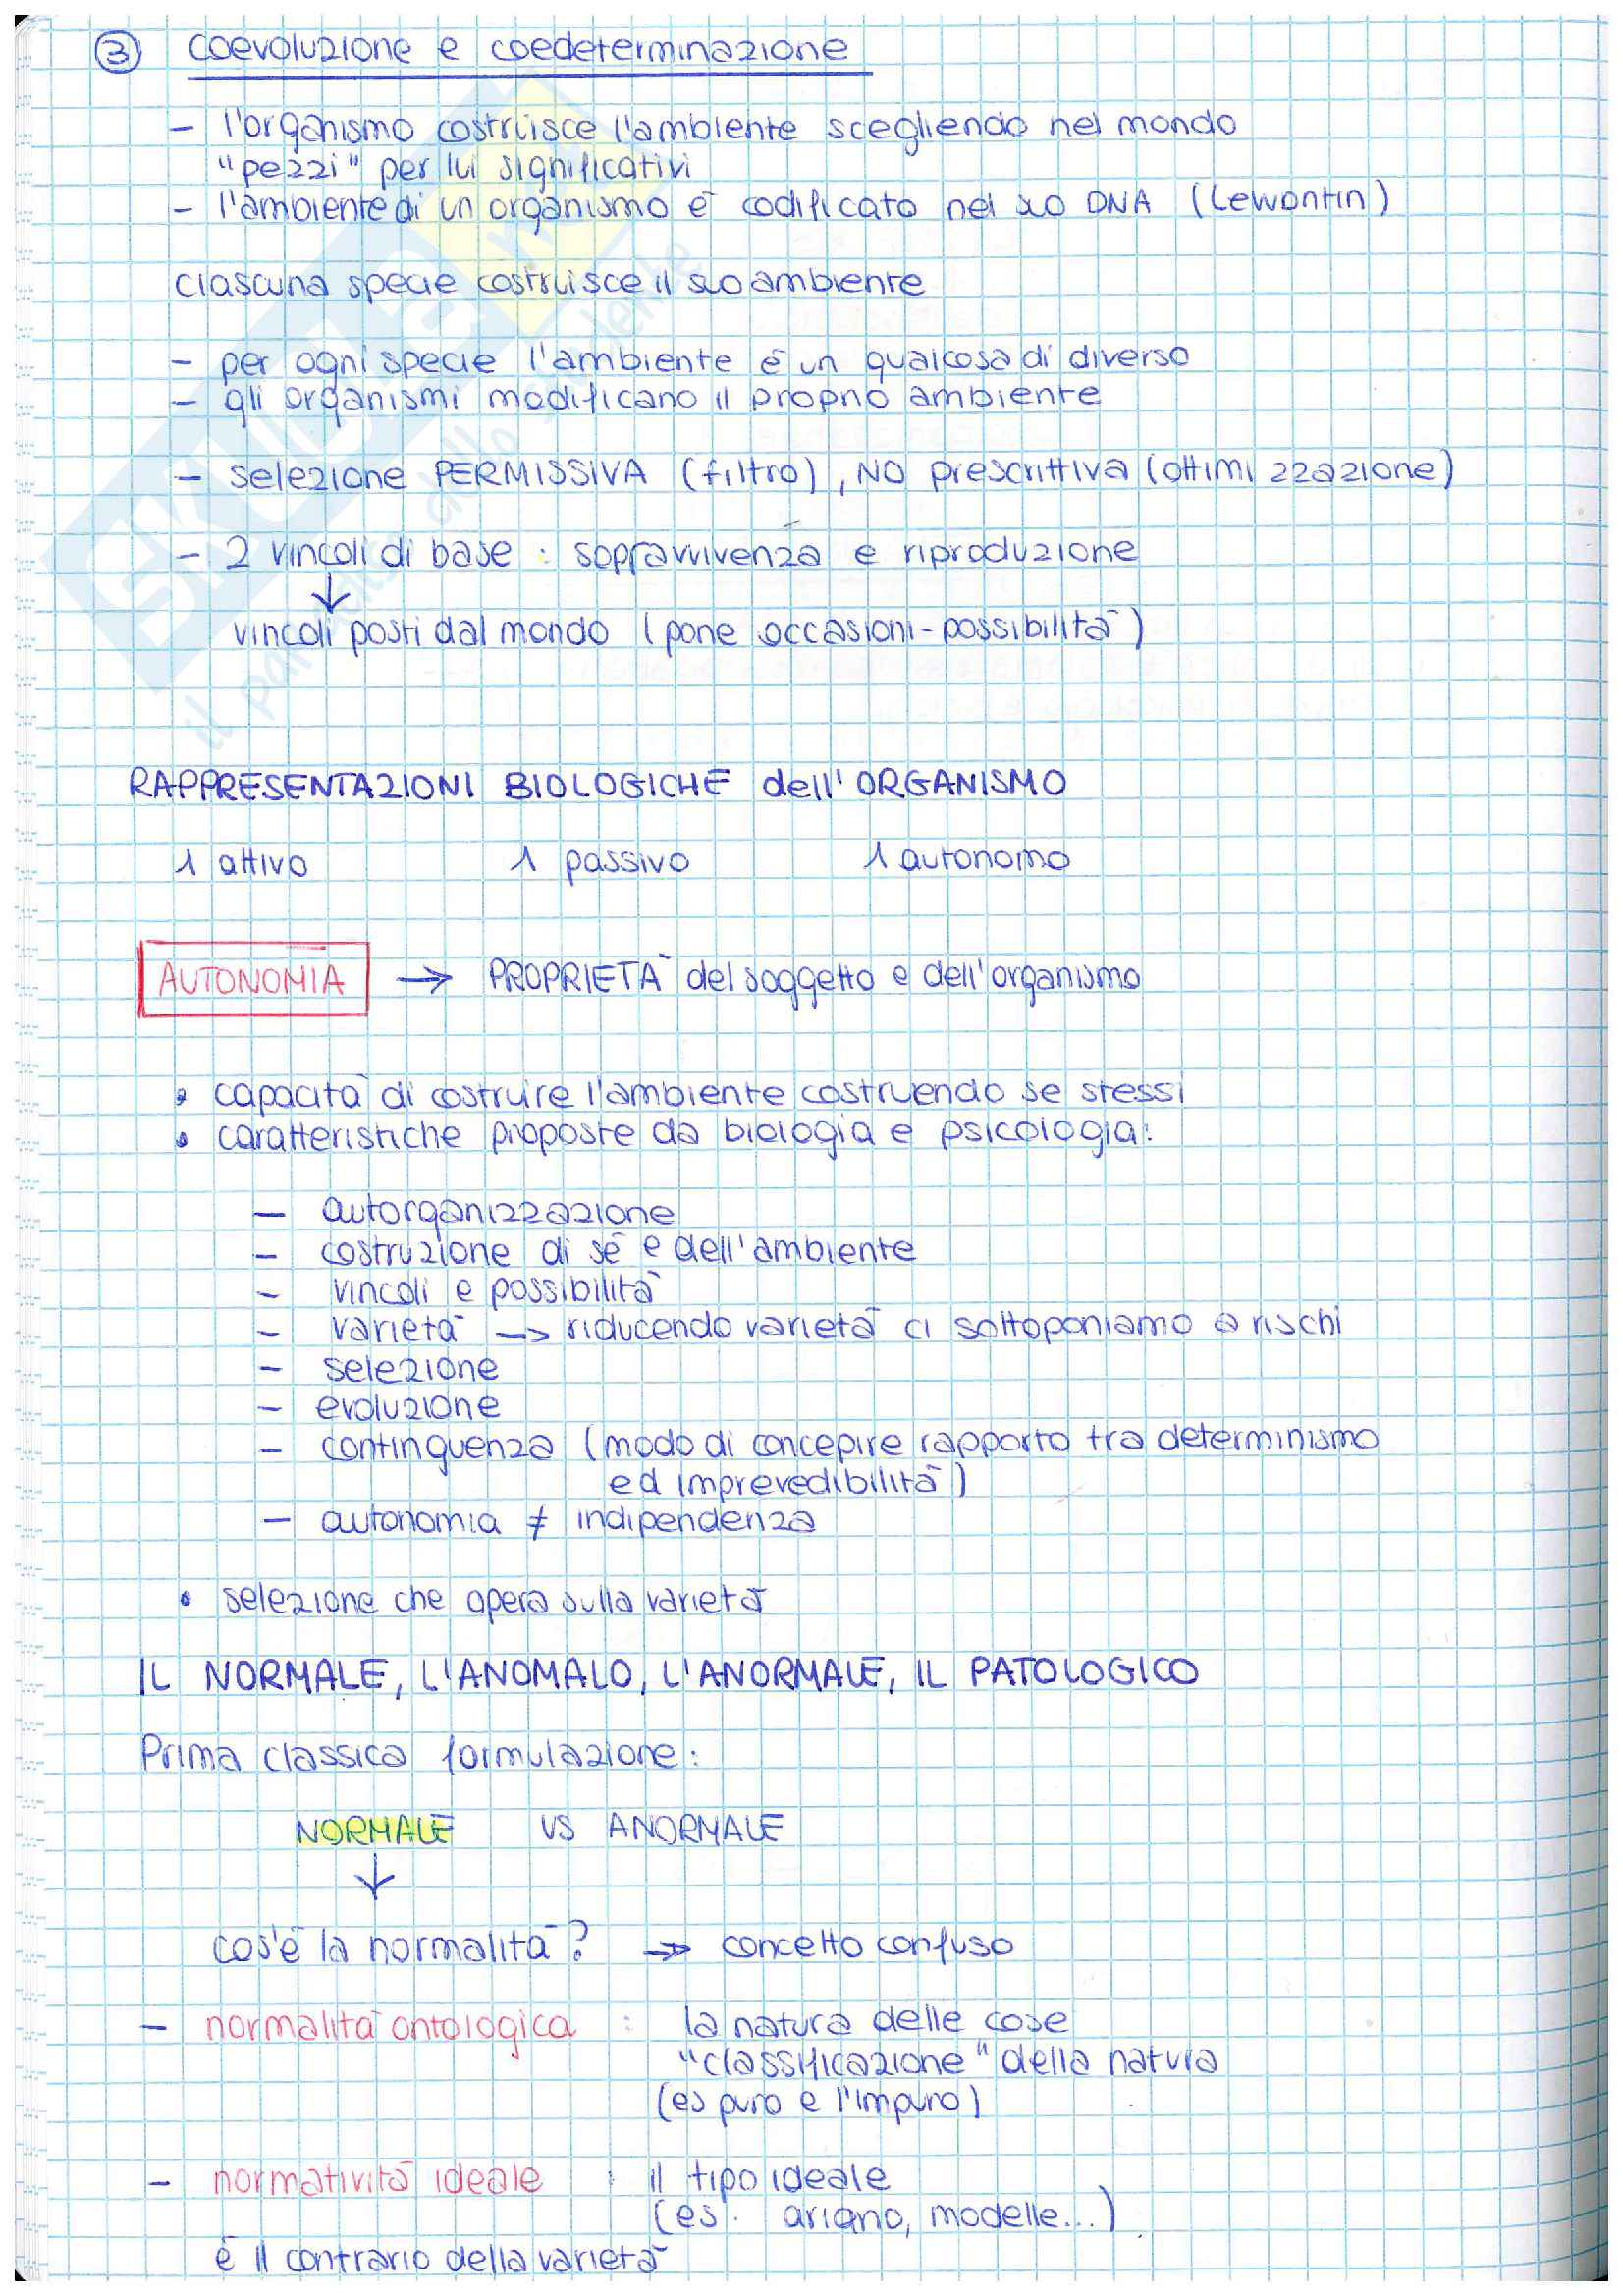 ③ coevoluzione e coedeterminazione
- l'organismo costruisce l'ambiente scegliendo nel mondo
"pezzi" per lui significativi
- l'ambiente di un organismo è codificato nel suo DNA (Lewontin)
ciascuna specie costruisce il suo ambiente
- per ogni specie l'ambiente è un qualcosa di diverso
- gli organismi modificano il proprio ambiente
- selezione PERMISSIVA (filtro), NO prescrittiva (ottimizzazione)
- 2 vincoli di base : sopravvivenza e riproduzione
↓
vincoli posti dal mondo (pone occasioni-possibilità)
RAPPRESENTAZIONI BIOLOGICHE dell'ORGANISMO
1 attivo 1 passivo 1 autonomo
AUTONOMIA → PROPRIETÀ del soggetto e dell'organismo
• capacità di costruire l'ambiente costruendo se stessi
• caratteristiche proposte da biologia e psicologia:
- autorganizzazione
- costruzione di sé e dell'ambiente
- vincoli e possibilità
- varietà -> riducendo varietà ci sottoponiamo a rischi
- selezione
- evoluzione
- continguenza (modo di concepire rapporto tra determinismo
ed imprevedibilità)
- autonomia ≠ indipendenza
• selezione che opera sulla varietà
IL NORMALE, L'ANOMALO, L'ANORMALE, IL PATOLOGICO
Prima classica formulazione:
NORMALE VS ANORMALE
↓
cos'è la normalità? → concetto confuso
- normalità ontologica : la natura delle cose
"classificazione" della natura
(es puro e l'impuro)
- normatività ideale : il tipo ideale
(es. ariano, modelle...)
è il contrario della varietà